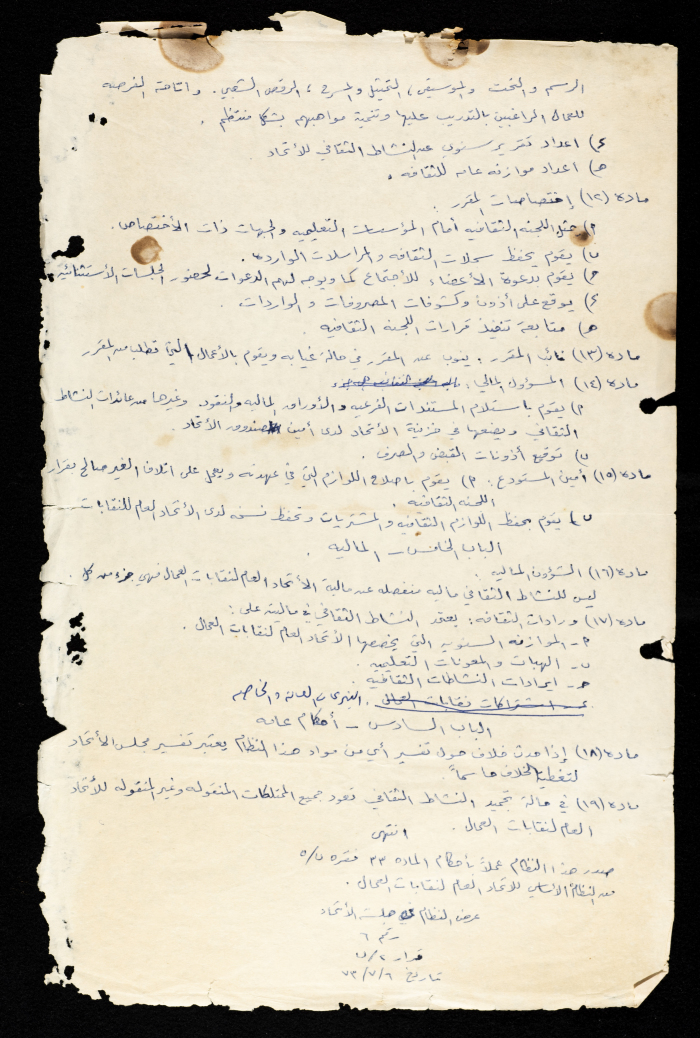 الرسم والنحت والموسيقى، التمثيل والمسرح، الرقص الشعبي. واتاحة الفرصه
للعمال الراغبين بالتدريب عليها وتنمية مواهبهم بشكل منتظم.
ء) اعداد تقرير سنوي عن النشاط الثقافي للأتحاد
هـ) اعداد موازنه عامه للثقافه.
ماده (١٢) إختصاصات المقرر.
أ) يمثل اللجنه الثقافيه أمام المؤسسات التعليميه والجهات ذات الأختصاص.
ب) يقوم بحفظ سجلات الثقافه والمراسلات الوارده.
ج) يقوم بدعوة الأعضاء للأجتماع كما ويوجه لهم الدعوات لحضور الجلسات الأستثنائية
ء) يوقع على أذون وكشوفات المصروفات والواردات.
هـ) متابعة تنفيذ قرارات اللجنه الثقافيه.
ماده (١٣) نائب المقرر: ينوب عن المقرر في حالة غيابه ويقوم بالأعمال التي تطلب من المقرر
ماده (١٤) المسؤول المالي:
أ) يقوم باستلام المستندات الفرعيه والأوراق الماليه والنقود. وغيرها من عائدات النشاط
الثقافي ويضعها في خزينة الأتحاد لدى أمين صندوق الأتحاد.
ب) توقيع أذونات القبض والصرف.
ماده (١٥) أمين المستودع: أ) يقوم باصلاح اللوازم التي في عهدته ويعمل على اتلاف الغير صالح بقرار
اللجنه الثقافيه.
ب) يقوم بحفظ اللوازم الثقافيه والمشتريات وتحفظ نسخه لدى الأتحاد العام للنقابات
الباب الخامس - الماليه.
ماده (١٦) الشؤون الماليه.
ليس للنشاط الثقافي ماليه منفصله عن مالية الأتحاد العام لنقابات العمال فهي جزء من كل
ماده (١٧) ورادات الثقافه: يعتمد النشاط الثقافي في ماليته على:
أ- الموازنه السنويه التي يخصصها الأتحاد العام لنقابات العمال.
ب- الهبات والمعونات التعليميه.
ج- ايرادات النشاطات الثقافيه.
ء- اشتراكات نقابات العمال. التبرعات العامه والخاصه
الباب السادس - أحكام عامه
ماده (١٨) إذا حدث خلاف حول تفسير أي من مواد هذا النظام يعتبر تفسير مجلس الأتحاد
لتغطية الخلاف حاسماً.
ماده (١٩) في حالة تجميد النشاط الثقافي تعود جميع الممتلكات المنقوله وغير المنقوله للأتحاد
العام لنقابات العمال. انتهى
صدر هذا النظام عملاً بأحكام الماده ٣٣ فقره ب/٥
من النظام الأساسي للاتحاد العام لنقابات العمال.
عرض النظام في جلسة الأتحاد
رقم ٦
قرار ٢/ب
تاريخ ٧٣/٧/٦